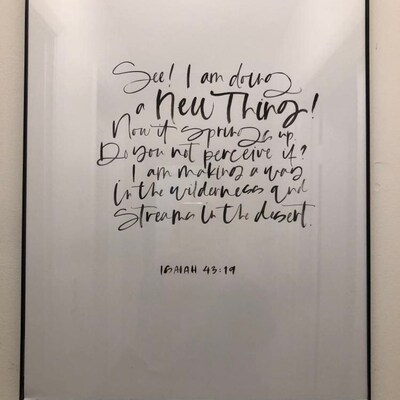 See! I am doing
a New Thing!
Now it springs up.
Do you not perceive it?
I am making a way
in the wilderness and
streams in the desert.
ISAIAH 43:19